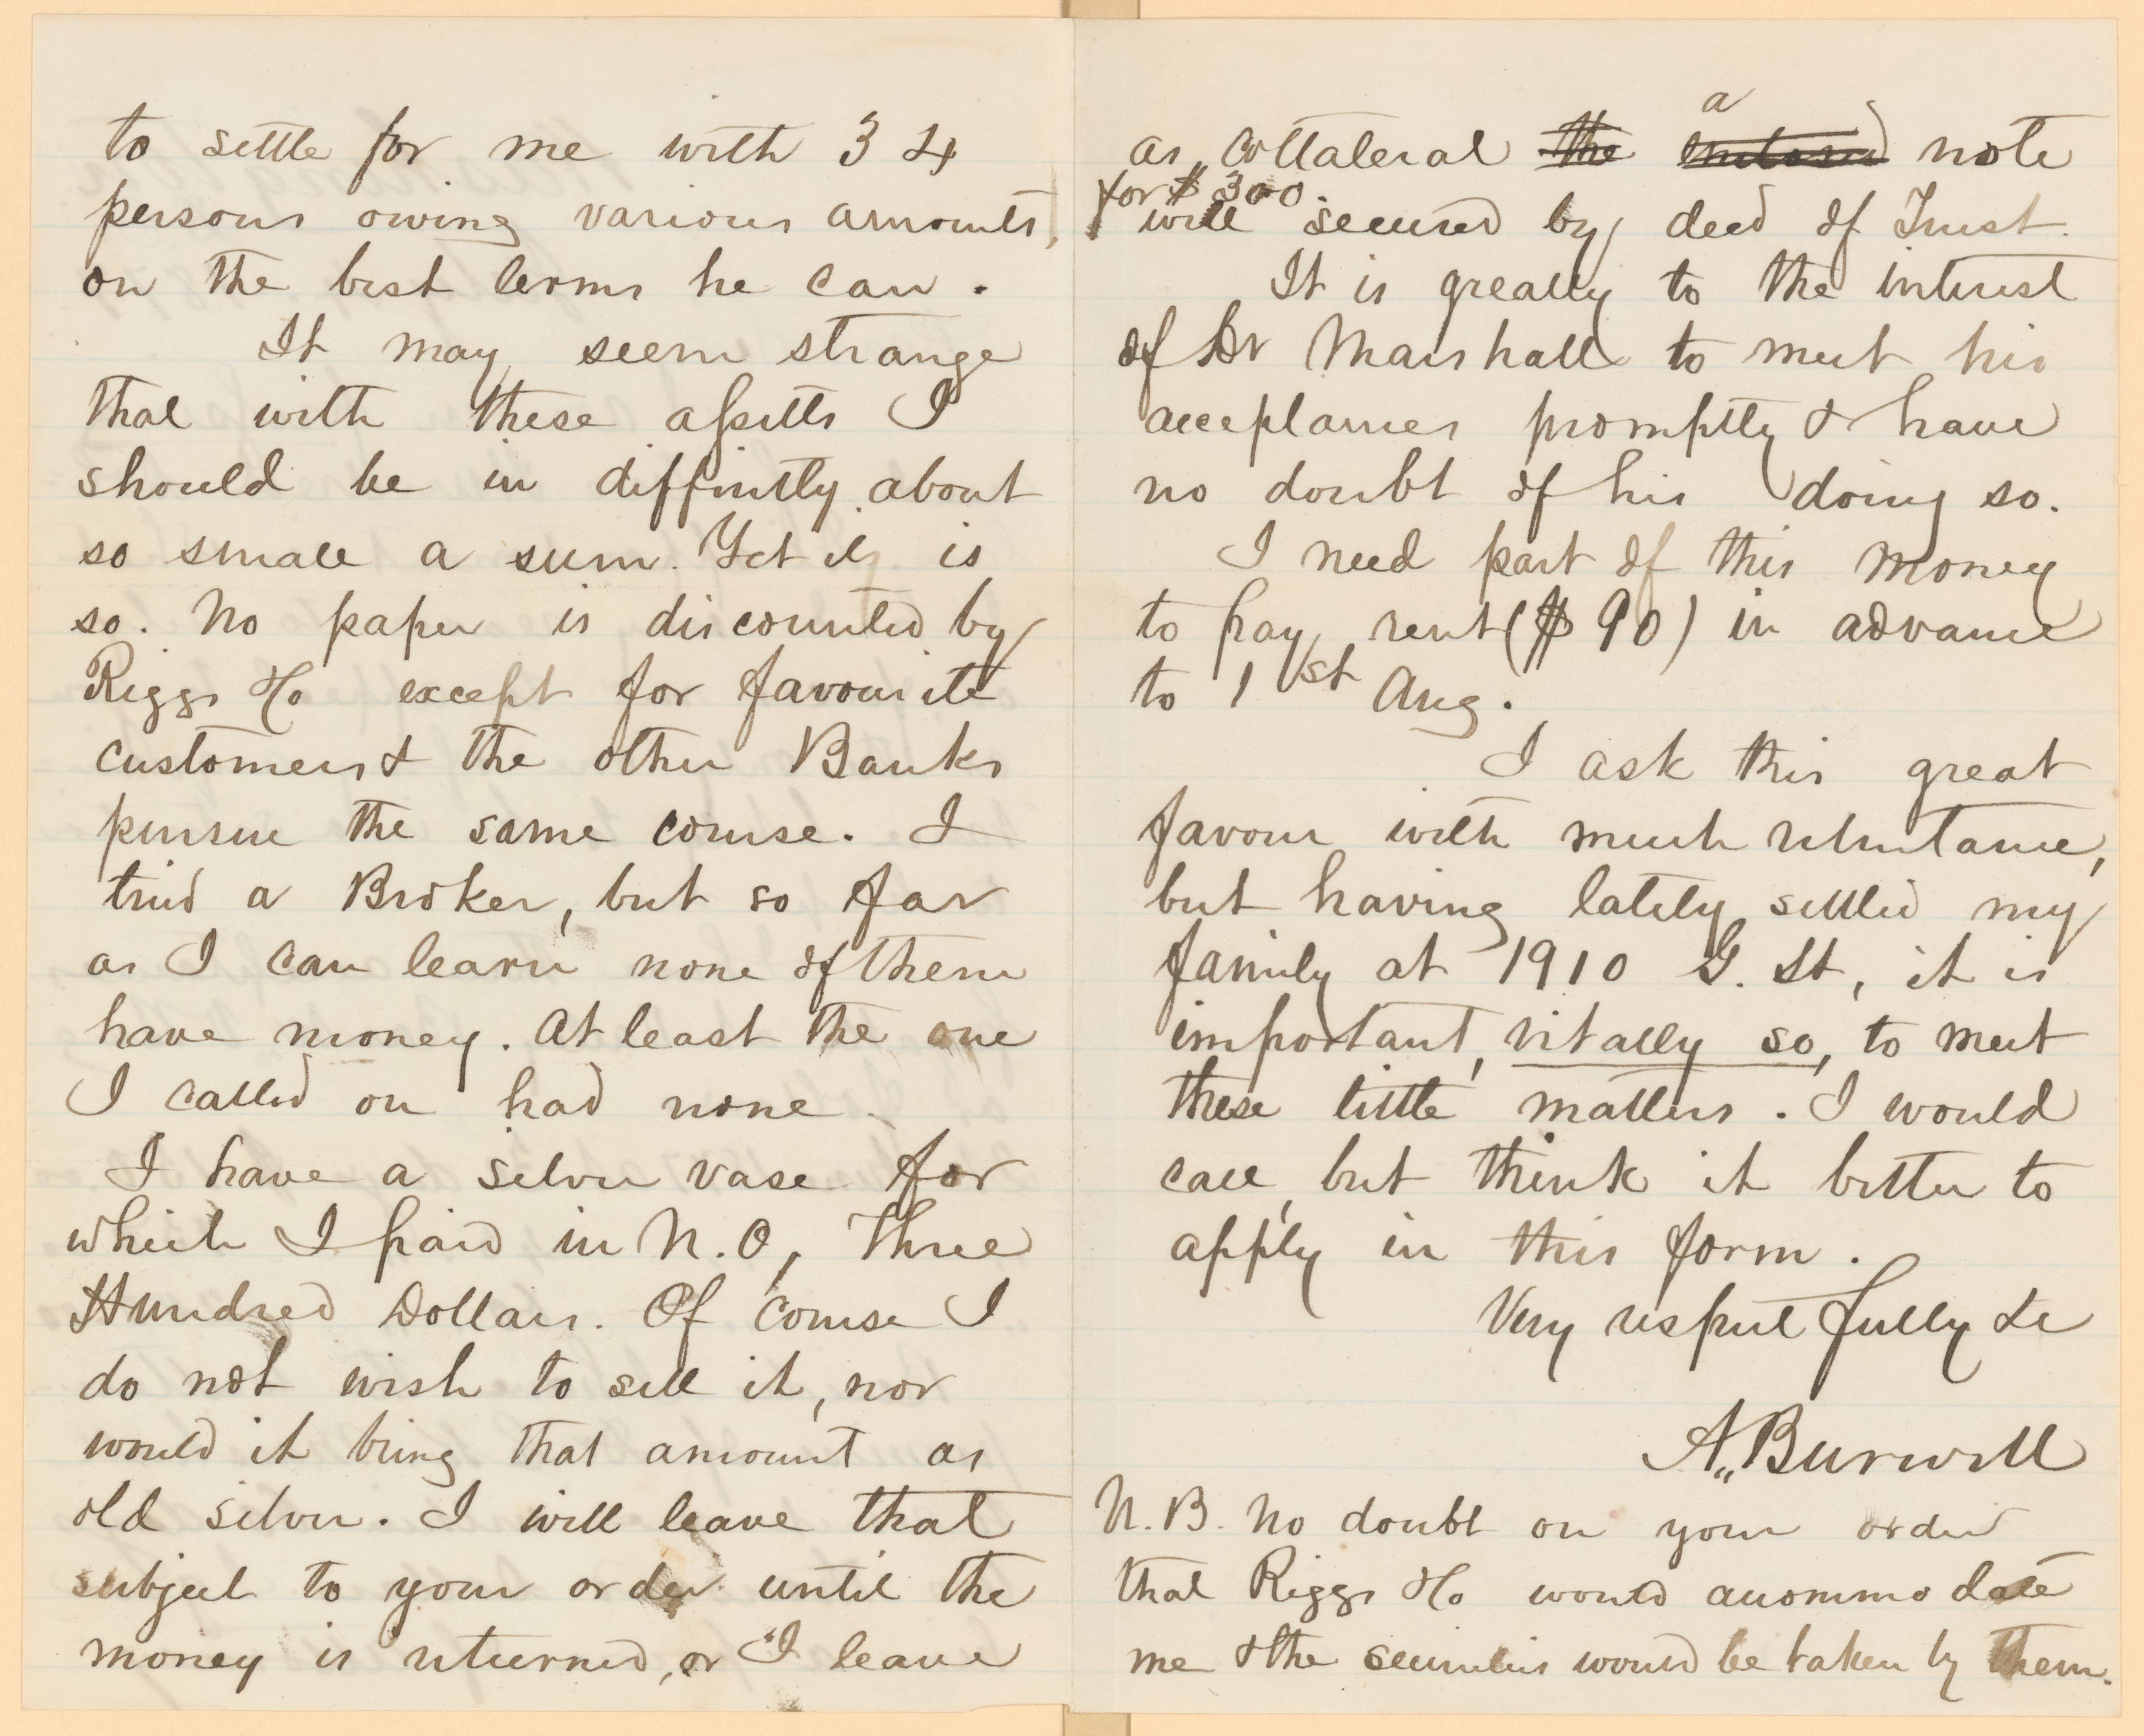 to settle for me with 34
persons owing various amounts,
on the best terms he can.
It may seem strange
that with these assetts I
should be in difficulty about
so small a sum. Yet it is
so. No paper is discounted by
Riggs & Co except for favourite
customers & the other Banks
pursue the same course. I
tried a Broker, but so far
as I can learn none of them
have money. At least the one
I called on had none.
I have a silver vase for
which I paid in N.O, Three
Hundred Dollars. Of course I
do not wish to sell it, nor
would it bring that amount as
old silver. I will leave that
subject to your order until the
money is returned, or I leave
a
as collateral the enclosed note
for $300.
well secured by deed of Trust.
It is greatly to the interest
of Dr Marshall to meet his
acceptances promptly & have
no doubt of his doing so.
I need part of this money
to pay rent ($90) in advance
to 1st Aug.
I ask this great
favour with much reluctance,
but having lately settled my
family at 1910 G. St, it is
important, vitally so, to meet
these little matters. I would
call, but think it better to
apply in this form.
Very respectfully &c
A. Burwell
N.B. No doubt on your order
that Riggs & Co would accommodate
me & the securities would be taken by them.